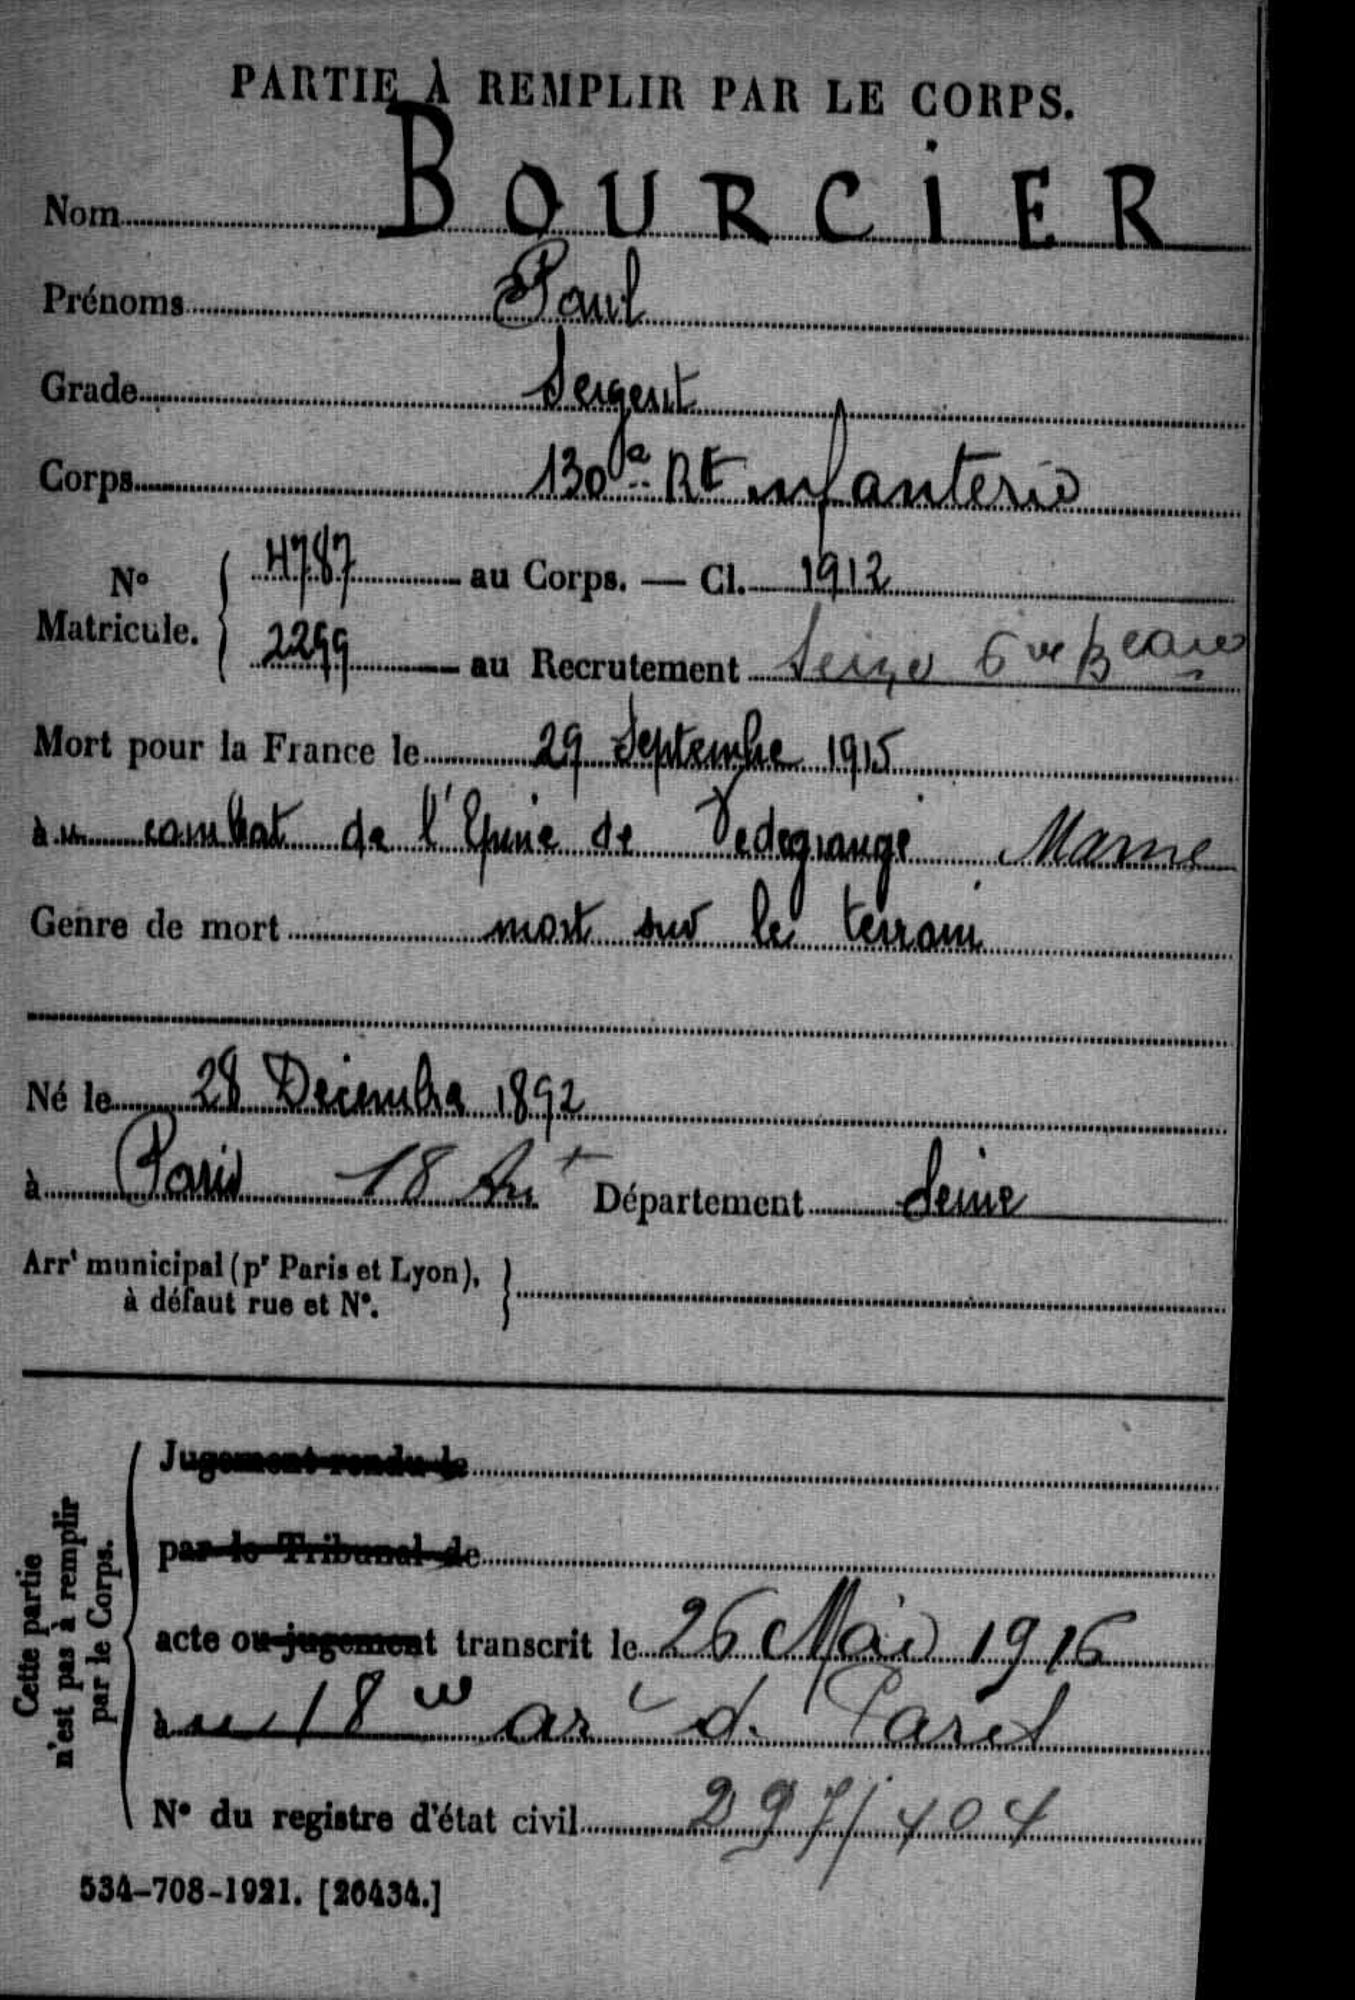 PARTIE À REMPLIR PAR LE CORPS.
Nom BOURCiER
Prénoms Paul
Grade Sergent
Corps 130e Rt infanterie
No Matricule. 4787 au Corps. — Cl. 1912
2299 au Recrutement Seine 6me Beau
Mort pour la France le 29 Septembre 1915
à u combat de l'Epine de Vedegrange Marne
Genre de mort mort sur le terrain
Né le 28 Décembre 1892
à Paris 18 Art Département Seine
Arrt municipal (pr Paris et Lyon), à défaut rue et No.
Cette partie n'est pas à remplir par le Corps.
Jugement rendu le
par le Tribunal de
acte ou jugement transcrit le 26 Mai 1916
à u 18e ar t d. Paris
No du registre d'état civil 297/404
534-708-1921. [26434.]